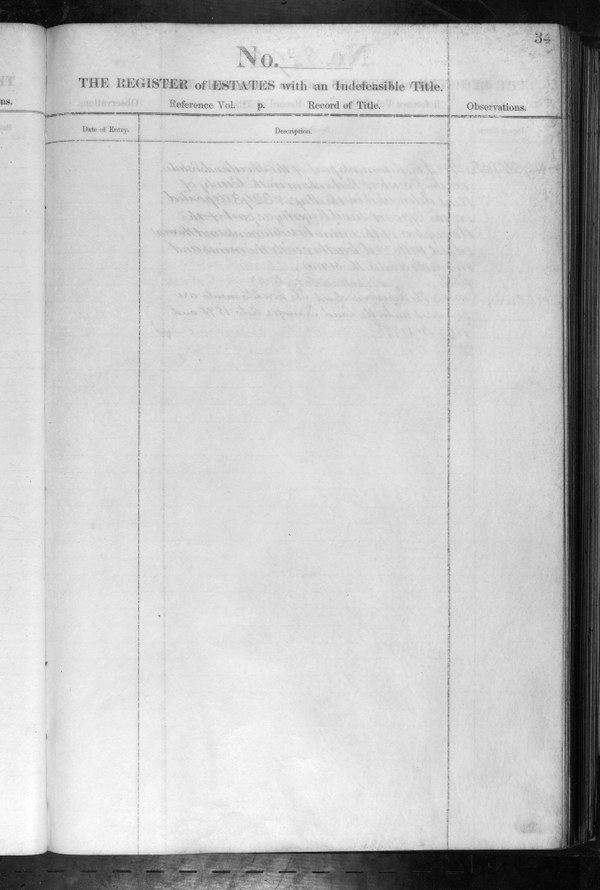 34
No.
THE REGISTER of ESTATES with an Indefeasible Title.
ns.
Reference Vol. p. Record of Title. Observations.
Date of Entry. Description.